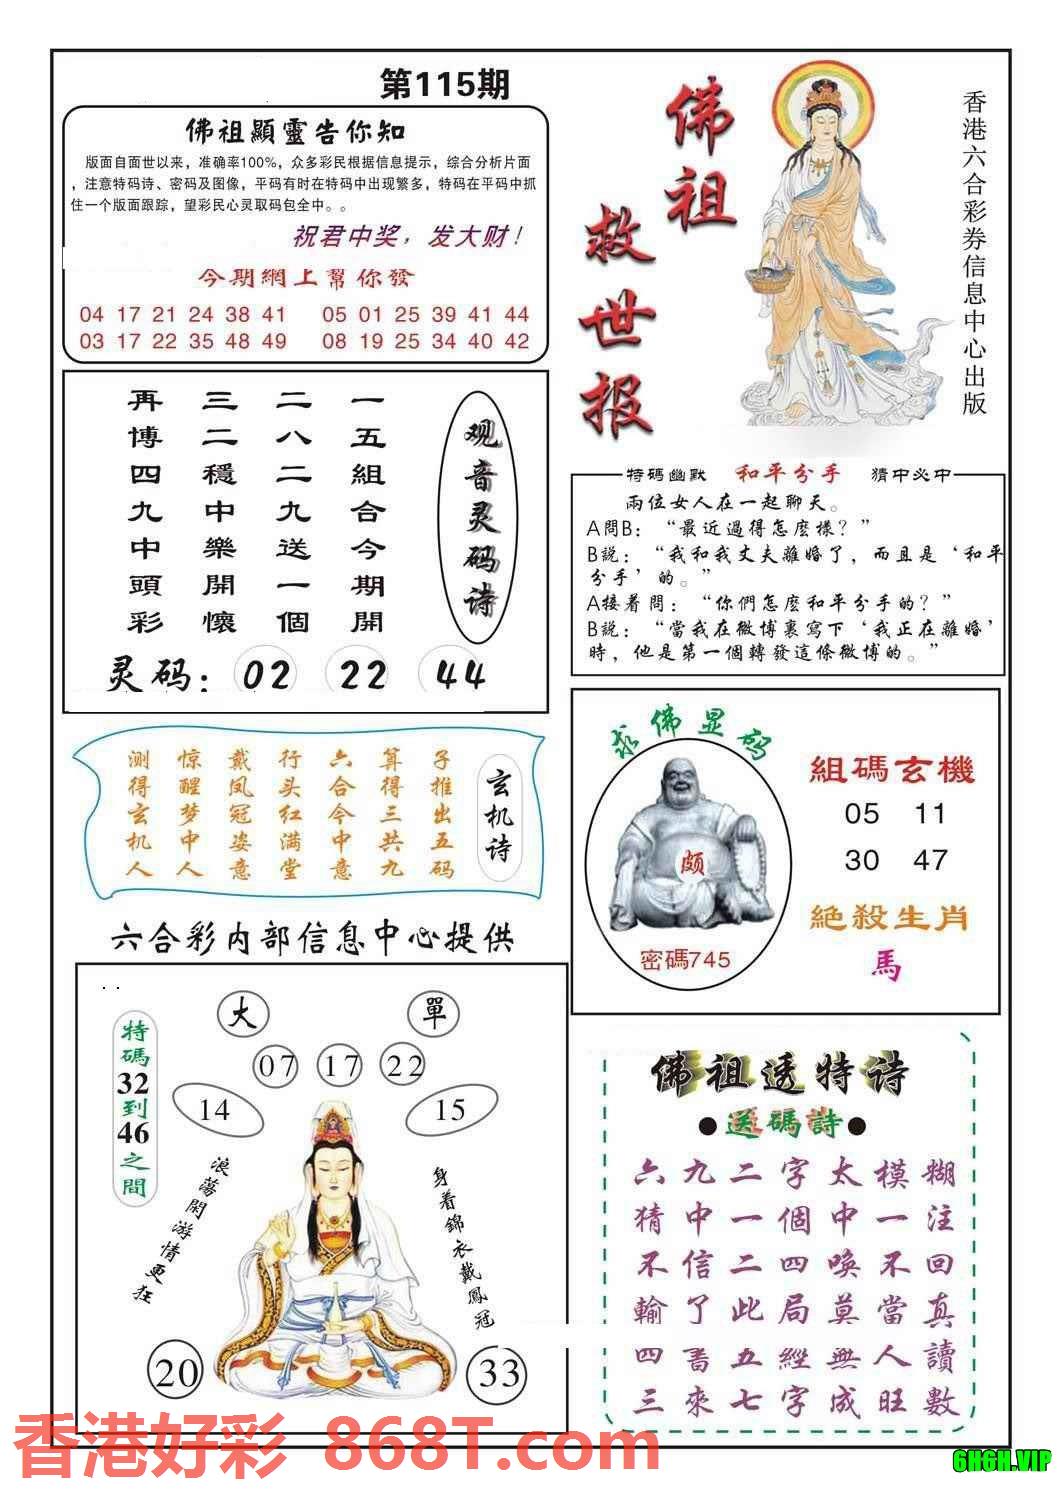 第115期
佛祖顯靈告你知
版面自面世以来，准确率100%，众多彩民根据信息提示，综合分析片面
，注意特码诗、密码及图像，平码有时在特码中出现繁多，特码在平码中抓
住一个版面跟踪，望彩民心灵取码包全中。。
祝君中奖，发大财！
今期網上幫你發
04 17 21 24 38 41 05 01 25 39 41 44
03 17 22 35 48 49 08 19 25 34 40 42
佛祖
救世报
香港六合彩券信息中心出版
观音灵码诗
一五組合今期開
二八二九送一個
三二穩中樂開懷
再博四九中頭彩
灵码：02 22 44
特碼幽默 和平分手 猜中必中
兩位女人在一起聊天。
A問B：“最近過得怎麽樣？”
B説：“我和我丈夫離婚了，而且是‘和平
分手’的。”
A接着問：“你們怎麽和平分手的？”
B説：“當我在微博裏寫下‘我正在離婚’
時，他是第一個轉發這條微博的。”
玄机诗
子推出五码
算得三共九
六合今中意
行头红满堂
戴凤冠姿意
惊醒梦中人
测得玄机人
求佛显码
颇
密碼745
組碼玄機
05 11
30 47
絶殺生肖
馬
六合彩内部信息中心提供
大 單
07 17 22
14 15
特碼32到46之間
浪蕩閑游情更狂
身着錦衣戴鳳冠
20 33
佛祖透特诗
●送碼詩●
六九二字太模糊
猜中一個中一注
不信二四喚不回
輸了此局莫當真
四書五經無人讀
三來七字成旺數
香港好彩 868T.com
6H6H.VIP